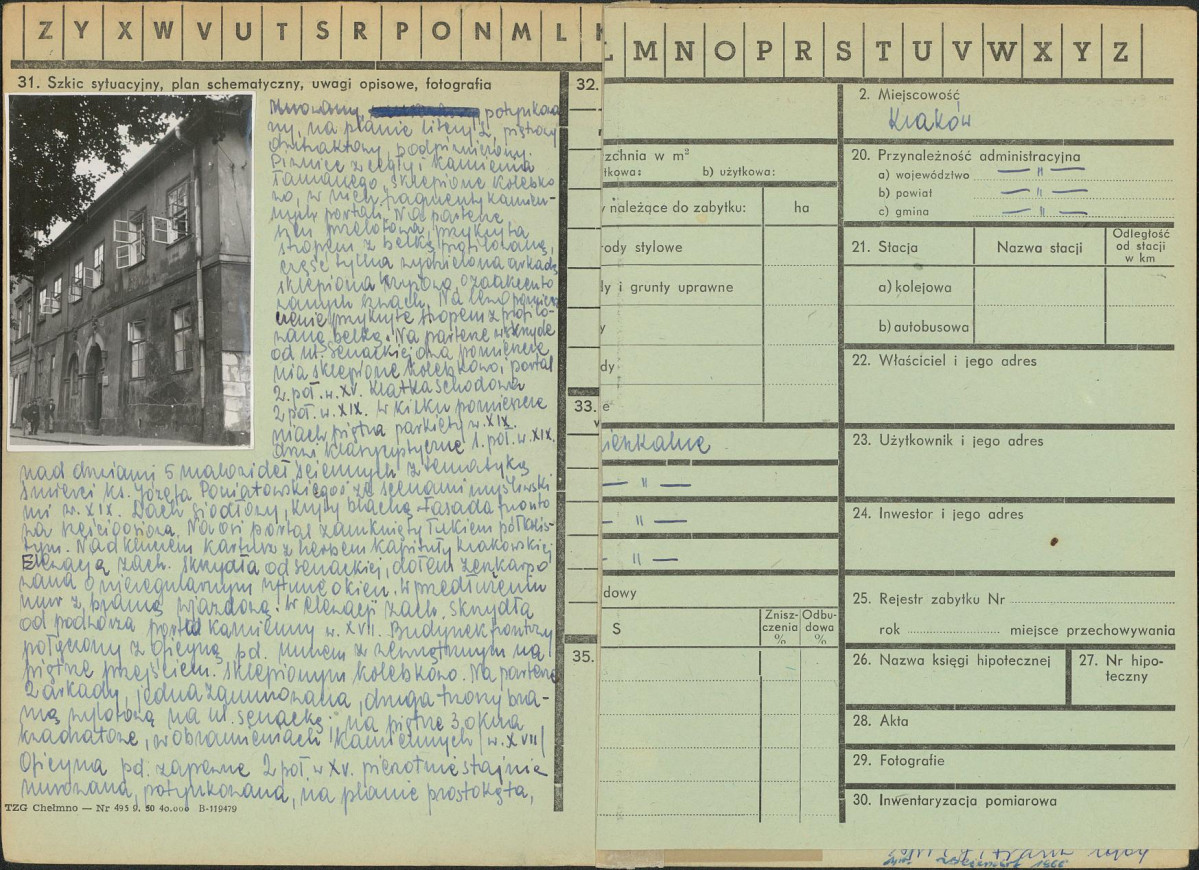 Z Y X W V U T S R P O N M L K
31. Szkic sytuacyjny, plan schematyczny, uwagi opisowe, fotografia
32.
Murowany, potynkowa
ny, na planie litery z, piętrowy
dwutraktowy, podpiwniczony.
Piwnice z cegły i kamienia
łamanego, sklepione kolebko
wo, w nich fragmenty kamien-
nych portali. Na parterze
sień przelotowa, przykryta
stropem z belką profilowaną,
część tylna wydzielona arkadą
sklepiona krzyżowo, o zaakcento
wanych krach. Na lewo pomiesz
czenie przykryte stropem z profilo-
waną belką. Na parterze w skrzydle
od ul. Senackiej dwa pomieszcze
nia sklepione kolebkowo, portal
2. poł. w. XV. Klatka schodowa
2 poł. w. XIX. W kilku pomieszcze
niach piętra parkiety w. XIX.
drzwi klasycystyczne 1. poł. w. XIX.
33.
nad drzwiami 5 malowideł ściennych z tematyką
śmierci ks. Józefa Poniatowskiego i ze scenami myśliwski
mi w. XIX. Dach siodłowy, kryty blachą. Fasada fronto
wa sześcioosiowa. Na osi portal zamknięty łukiem półkolis-
tym. Nad kluczem kartusz z herbem Kapituły krakowskiej
Elewacja zach. skrzydła od senackiej, dołem zeszkarpo
wana o nieregularnym rytmie okien. W przedłużeniu
mur z bramą wjazdową. W elewacji zach. skrzydła
od podwórza portal kamienny w. XVII. Budynek frontowy
połączony z oficyną pd. murem z zewnętrznym na
piętrze przejściem. Sklepionym kolebkowo. Na parterze
2 arkady, jedna zamurowana, druga tworzy bra-
mę wylotową na ul. senacką, na piętrze 3 okna
kwadratowe, w obramieniach kamiennych /w. XVII/
35.
Oficyna pd. zapewne 2 poł. w XV. pierwotnie stajnie
murowana, potynkowana, na planie prostokąta,
TZG Chełmno — Nr 495 9. 50 40.000 B-119479
L M N O P R S T U V W X Y Z
2. Miejscowość
Kraków
rzchnia w m²
tkowa: b) użytkowa:
20. Przynależność administracyjna
a) województwo — " —
b) powiat — " —
c) gmina — " —
y należące do zabytku: ha
rody stylowe
y i grunty uprawne
y
dy
e
21. Stacja Nazwa stacji Odległość od stacji w km
a) kolejowa
b) autobusowa
22. Właściciel i jego adres
23. Użytkownik i jego adres
mieszkalne
— " —
— " —
— " —
24. Inwestor i jego adres
dowy
S Znisz-czenia % Odbu-dowa %
25. Rejestr zabytku Nr
rok miejsce przechowywania
26. Nazwa księgi hipotecznej
27. Nr hipo-teczny
28. Akta
29. Fotografie
30. Inwentaryzacja pomiarowa